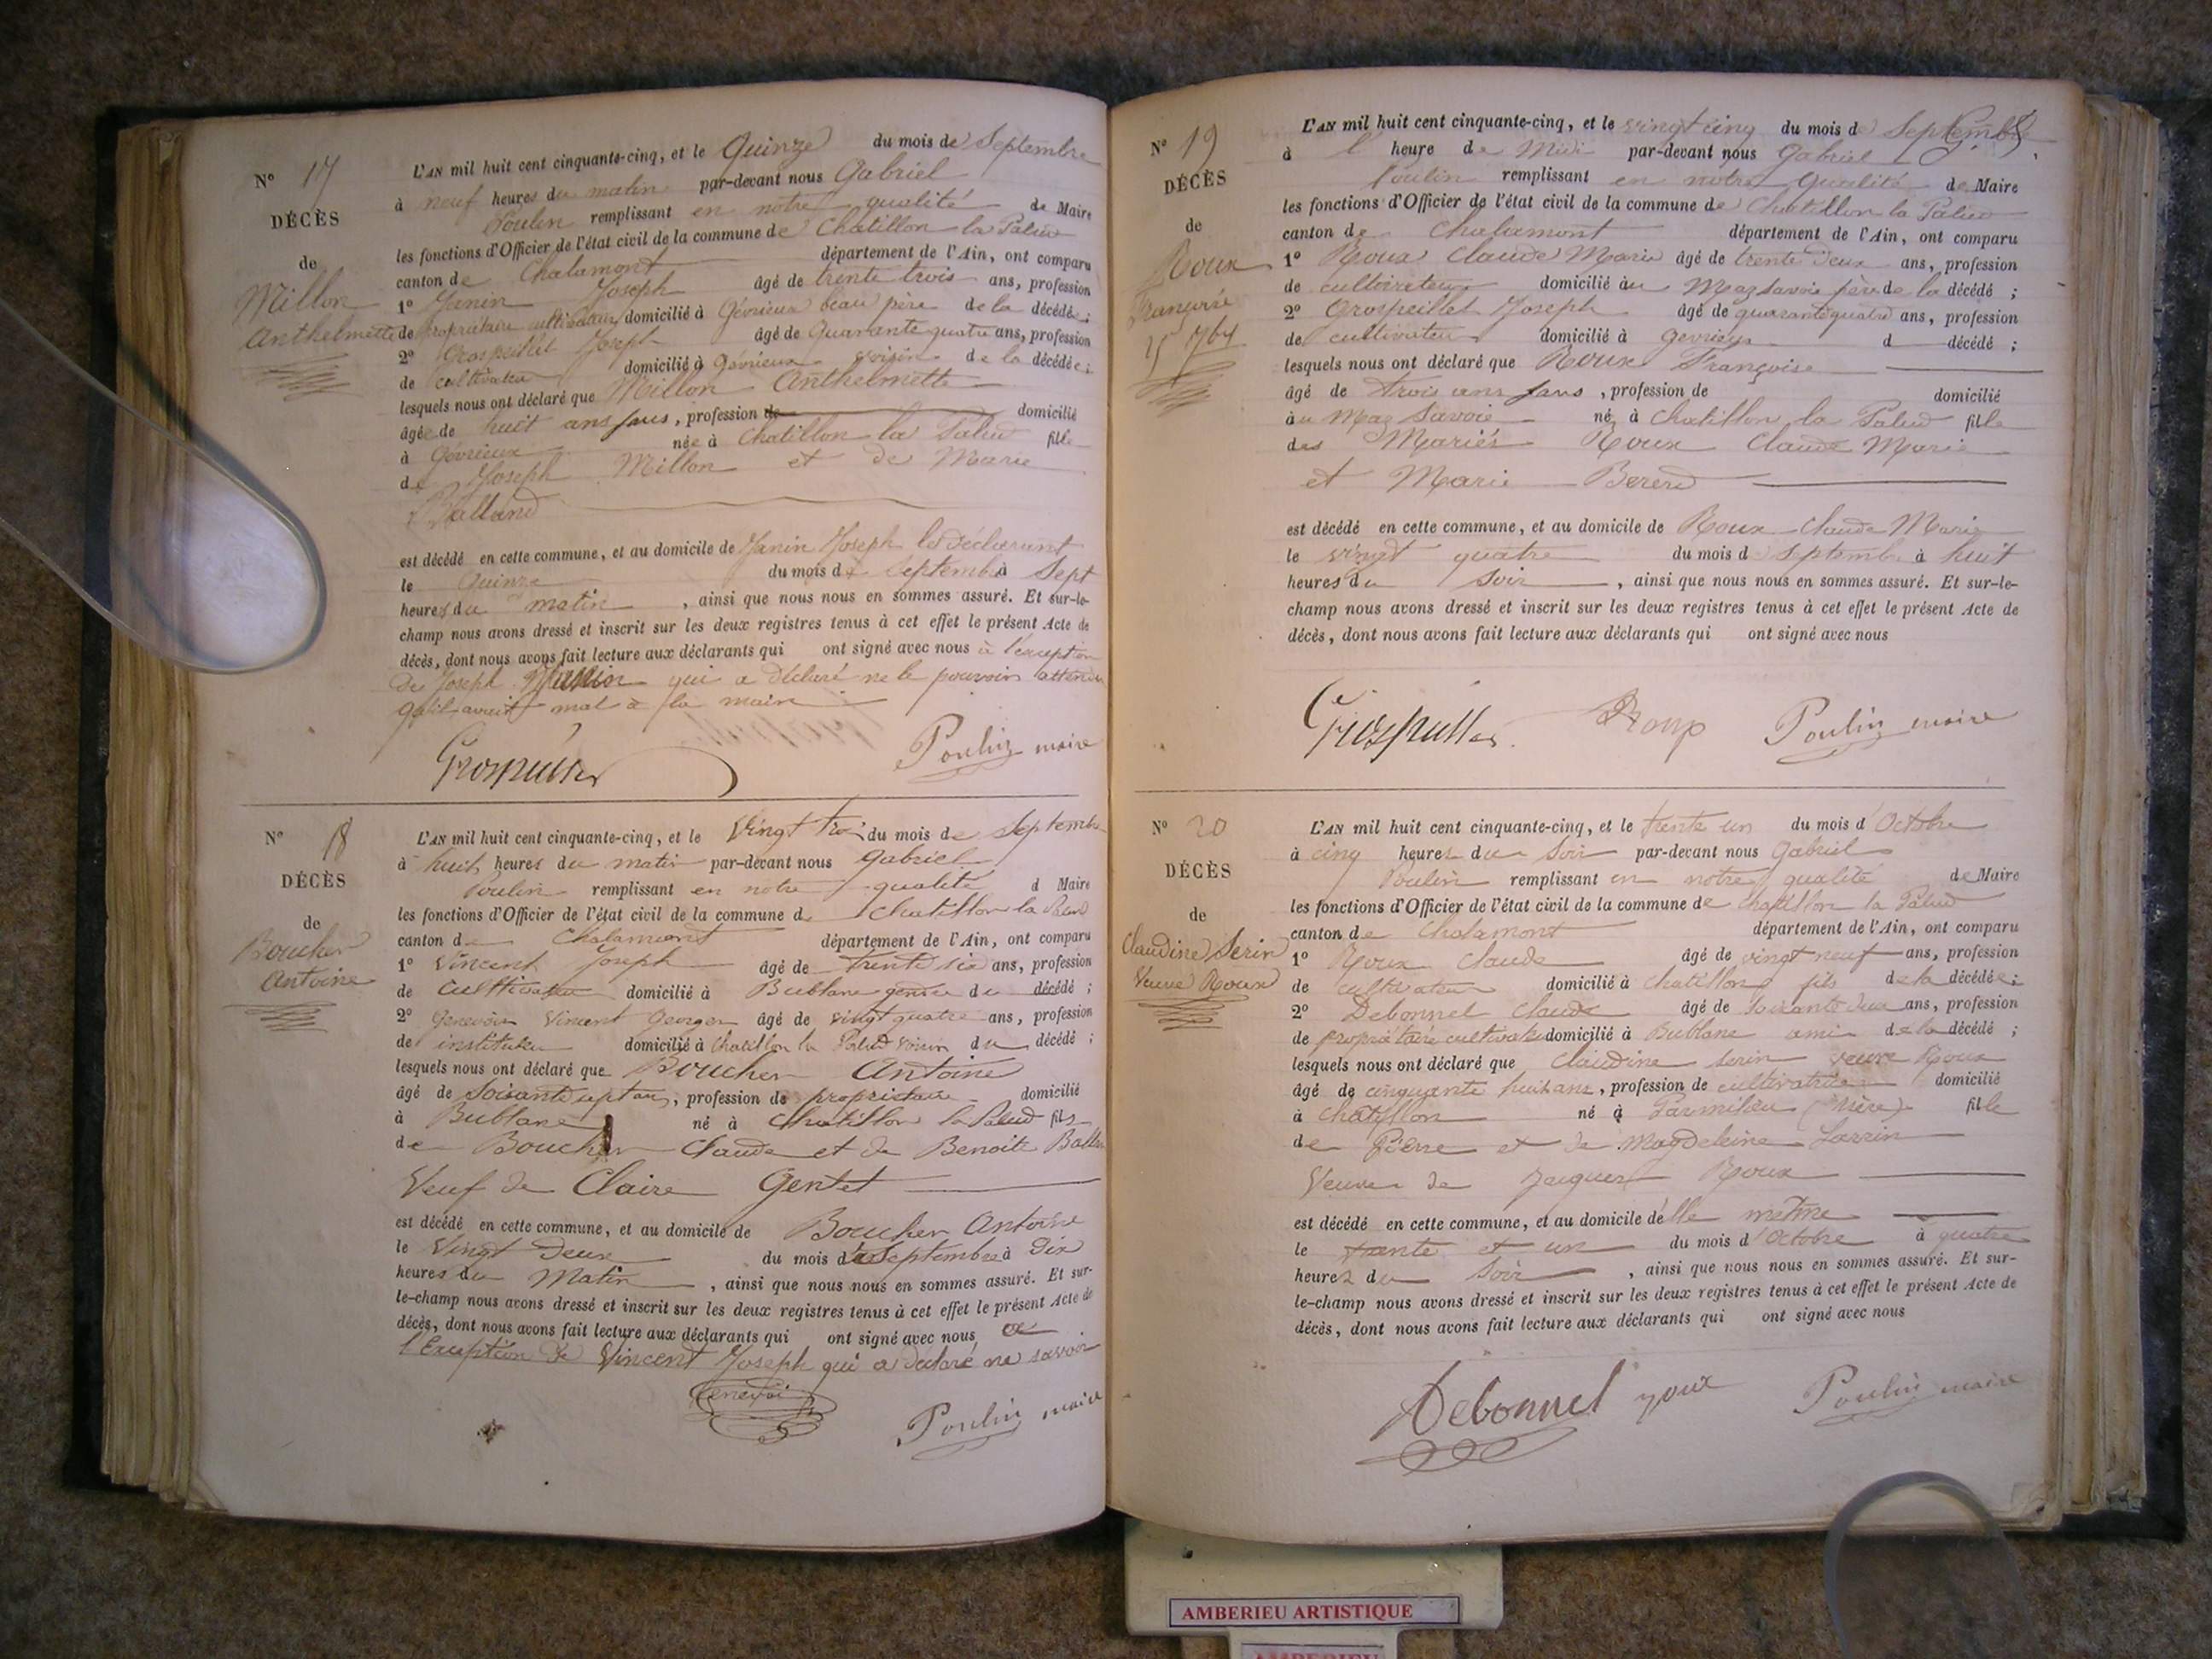 N° 17
DÉCÈS
de
Millon
Anthelmette
L'AN mil huit cent cinquante-cinq, et le Quinze du mois de Septembre
à neuf heures du matin par-devant nous Gabriel
Poulin remplissant en notre qualité de Maire
les fonctions d'Officier de l'état civil de la commune de Chatillon la Palud
canton de Chalamont département de l'Ain, ont comparu
1° Janin Joseph âgé de trente trois ans, profession
de propriétaire cultivateur domicilié à Gévrieux beau père de la décédée ;
2° Grospeillet Joseph âgé de Quarante quatre ans, profession
de cultivateur domicilié à Gévrieux voisin de la décédée ;
lesquels nous ont déclaré que Millon Anthelmette
âgée de huit ans, profession de domicilié
à Gévrieux née à Chatillon la Palud fille
de Joseph Millon et de Marie
Balland
est décédé en cette commune, et au domicile de Janin Joseph le déclarant
le Quinze du mois de Septembre à Sept
heures du matin, ainsi que nous nous en sommes assuré. Et sur-le-
champ nous avons dressé et inscrit sur les deux registres tenus à cet effet le présent Acte de
décès, dont nous avons fait lecture aux déclarants qui ont signé avec nous à l'exception
de Joseph Janin qui a déclaré ne le pouvoir attendu
qu'il avait mal à la main
Poulin maire
N° 18
DÉCÈS
de
Boucher
Antoine
L'AN mil huit cent cinquante-cinq, et le Vingt trois du mois de Septembre
à huit heures du matin par-devant nous Gabriel
Poulin remplissant en notre qualité d Maire
les fonctions d'Officier de l'état civil de la commune de Chatillon la Palud
canton de Chalamont département de l'Ain, ont comparu
1° Vincent Joseph âgé de trente six ans, profession
de Culttivateur domicilié à Bublane gendre du décédé ;
2° Genevois Vincent Georges âgé de vingt quatre ans, profession
de instituteur domicilié à Chatillon la Palud voisin du décédé ;
lesquels nous ont déclaré que Boucher Antoine
âgé de Soixante sept ans, profession de propriétaire domicilié
à Bublane né à Chatillon la Palud fils
de Boucher Claude et de Benoite
Veuf de Claire Gentet
est décédé en cette commune, et au domicile de Boucher Antoine
le Vingt deux du mois de Septembre à Dix
heures du Matin, ainsi que nous nous en sommes assuré. Et sur-
le-champ nous avons dressé et inscrit sur les deux registres tenus à cet effet le présent Acte de
décès, dont nous avons fait lecture aux déclarants qui ont signé avec nous à
l'Exception de Vincent Joseph qui a déclaré ne savoir
Genevois
Poulin maire
N° 19
DÉCÈS
de
Roux
Françoise
L'AN mil huit cent cinquante-cinq, et le vingt cinq du mois de Septembre
à l' heure de Midi par-devant nous Gabriel
Poulin remplissant en notre Qualité de Maire
les fonctions d'Officier de l'état civil de la commune de Chatillon la Palud
canton de Chalamont département de l'Ain, ont comparu
1° Roux Claude Marie âgé de trente deux ans, profession
de cultivateur domicilié au Maz Savoie père de la décédé ;
2° Grospeillet Joseph âgé de quarante quatre ans, profession
de cultivateur domicilié à Gevrieux d décédé ;
lesquels nous ont déclaré que Roux Françoise
âgé de trois ans, profession de domicilié
au Maz Savoie né à Chatillon la Palud fille
des Mariés Roux Claude Marie
et Marie Bererd
est décédé en cette commune, et au domicile de Roux Claude Marie
le vingt quatre du mois d Septembre à huit
heures du Soir, ainsi que nous nous en sommes assuré. Et sur-le-
champ nous avons dressé et inscrit sur les deux registres tenus à cet effet le présent Acte de
décès, dont nous avons fait lecture aux déclarants qui ont signé avec nous
Poulin maire
N° 20
DÉCÈS
de
Claudine Serin
Veuve Roux
L'AN mil huit cent cinquante-cinq, et le trente un du mois d'Octobre
à cinq heures du Soir par-devant nous Gabriel
Poulin remplissant en notre qualité de Maire
les fonctions d'Officier de l'état civil de la commune de chatillon la Palud
canton de Chalamont département de l'Ain, ont comparu
1° Roux Claude âgé de vingt neuf ans, profession
de cultivateur domicilié à Chatillon fils de la décédée ;
2° Debonnel Claude âgé de soixante deux ans, profession
de propriétaire cultivateur domicilié à Bublane ami de la décédé ;
lesquels nous ont déclaré que Claudine Serin veuve Roux
âgé de cinquante huit ans, profession de cultivatrice domicilié
à Chatillon né à Parmilieu (Isère) fille
de Pierre et de Magdeleine Larrin
Veuve de Jacques Roux
est décédé en cette commune, et au domicile d'elle même
le trente et un du mois d'Octobre à quatre
heures du Soir, ainsi que nous nous en sommes assuré. Et sur-
le-champ nous avons dressé et inscrit sur les deux registres tenus à cet effet le présent Acte de
décès, dont nous avons fait lecture aux déclarants qui ont signé avec nous
Debonnel roux Poulin maire
AMBERIEU ARTISTIQUE
AMBERIEU